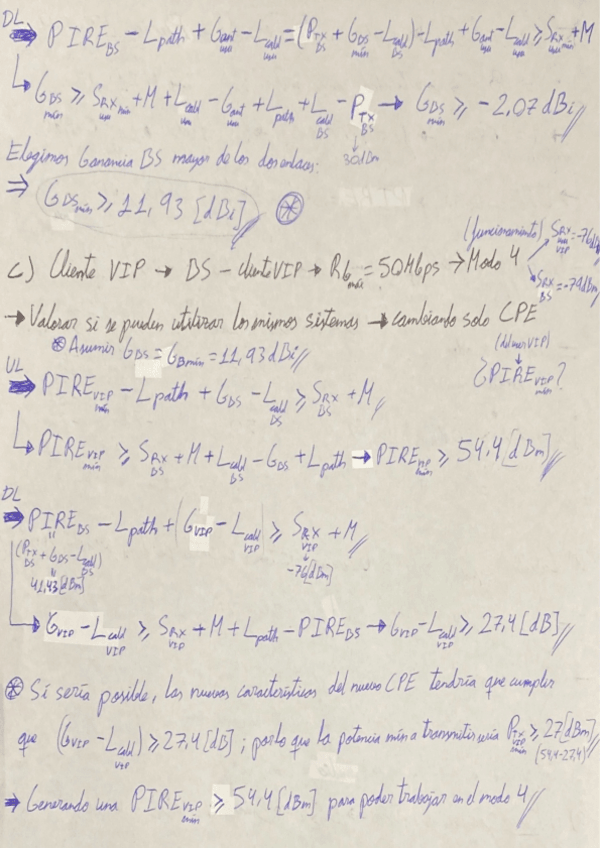 DL
⇒ PIRE_BS − Lpath + Gant_usu − Lcabl_usu = (PTx_BS + GBS_mín − Lcabl_BS) − Lpath + Gant_usu − Lcabl_usu ≥ SRx_mín_usu + M
↳ GBS_mín ≥ SRx_mín_usu + M + Lcabl_usu − Gant_usu + Lpath + Lcabl_BS − PTx_BS → GBS_mín ≥ −2,07 dBi
30dBm
Elegimos Ganancia BS mayor de los dos enlaces:
⇒ GBS_mín ≥ 11,93 [dBi] ⊛
(funcionamiento) SRx_usu_VIP = −76dBm
c) Cliente VIP → BS − client VIP → Rb_máx = 50Mbps → Modo 4
SRx_BS = −79dBm
→ Valorar si se pueden utilizar los mismos sistemas → cambiando solo CPE
(del user VIP)
⊛ Asumir GBS = GBmín = 11,93 dBi
¿PIRE_VIP_mín?
UL
⇒ PIRE_VIP_mín − Lpath + GBS − Lcabl_BS ≥ SRx_BS + M
↳ PIRE_VIP_mín ≥ SRx_BS + M + Lcabl_BS − GBS + Lpath → PIRE_VIP_mín ≥ 54,4 [dBm]
DL
⇒ PIRE_BS − Lpath + (GVIP − Lcabl_VIP) ≥ SRx_VIP + M
(PTx_BS + GBS − Lcabl_BS)
−76[dBm]
41,43[dBm]
↳ GVIP − Lcabl_VIP ≥ SRx_VIP + M + Lpath − PIRE_BS → GVIP − Lcabl_VIP ≥ 27,4 [dB]
⊛ Sí sería posible, las nuevas características del nuevo CPE tendría que cumplir
que (GVIP − Lcabl_VIP) ≥ 27,4 [dB]; por lo que la potencia mín a transmitir sería PTx_VIP_mín ≥ 27 [dBm]
(54,4−27,4)
⇒ Generando una PIRE_VIP_mín ≥ 54,4 [dBm] para poder trabajar en el modo 4